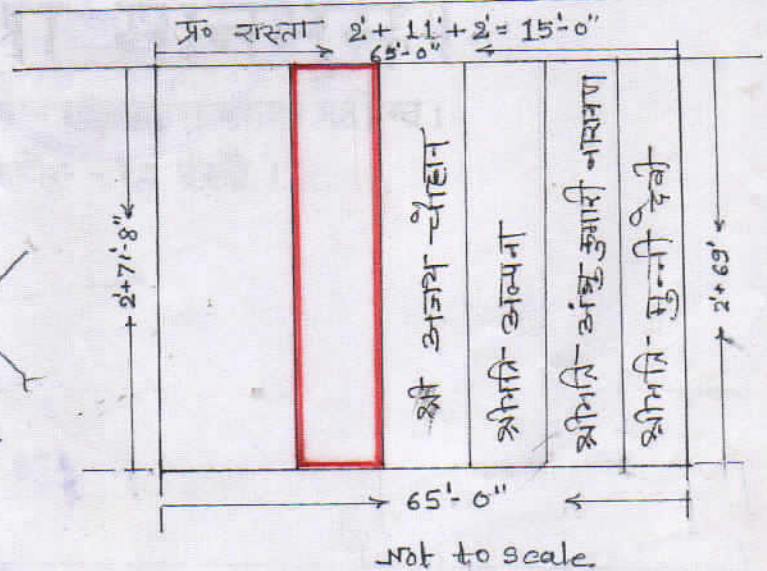 प्र० रास्ता 2' + 11' + 2' = 15'-0"
65'-0"
2'+71'-8"
श्री अजय चौहान
श्रीमति- अल्पना
श्रीमति- अंशु कुमारी नारायण
श्रीमति- मुन्नी देवी
2'+69'
65'-0"
Not to scale